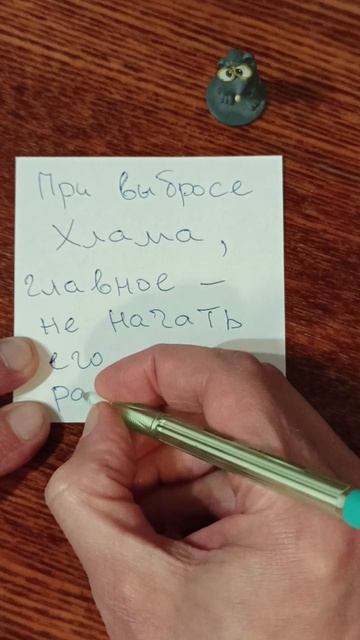 При выбросе
Хлама,
главное –
не начать
его
ра